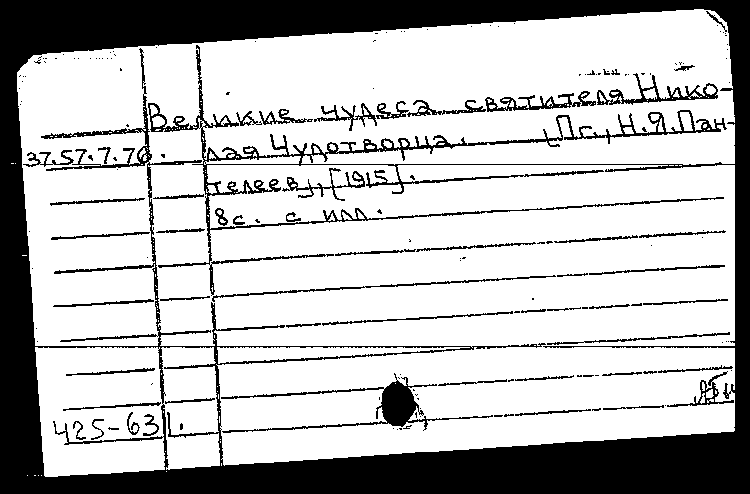 Великие чудеса святителя Нико-
37.57.7.76. лая Чудотворца. [Пг., Н.Я.Пан-
телеев], [1915].
8с. с илл.
425-63